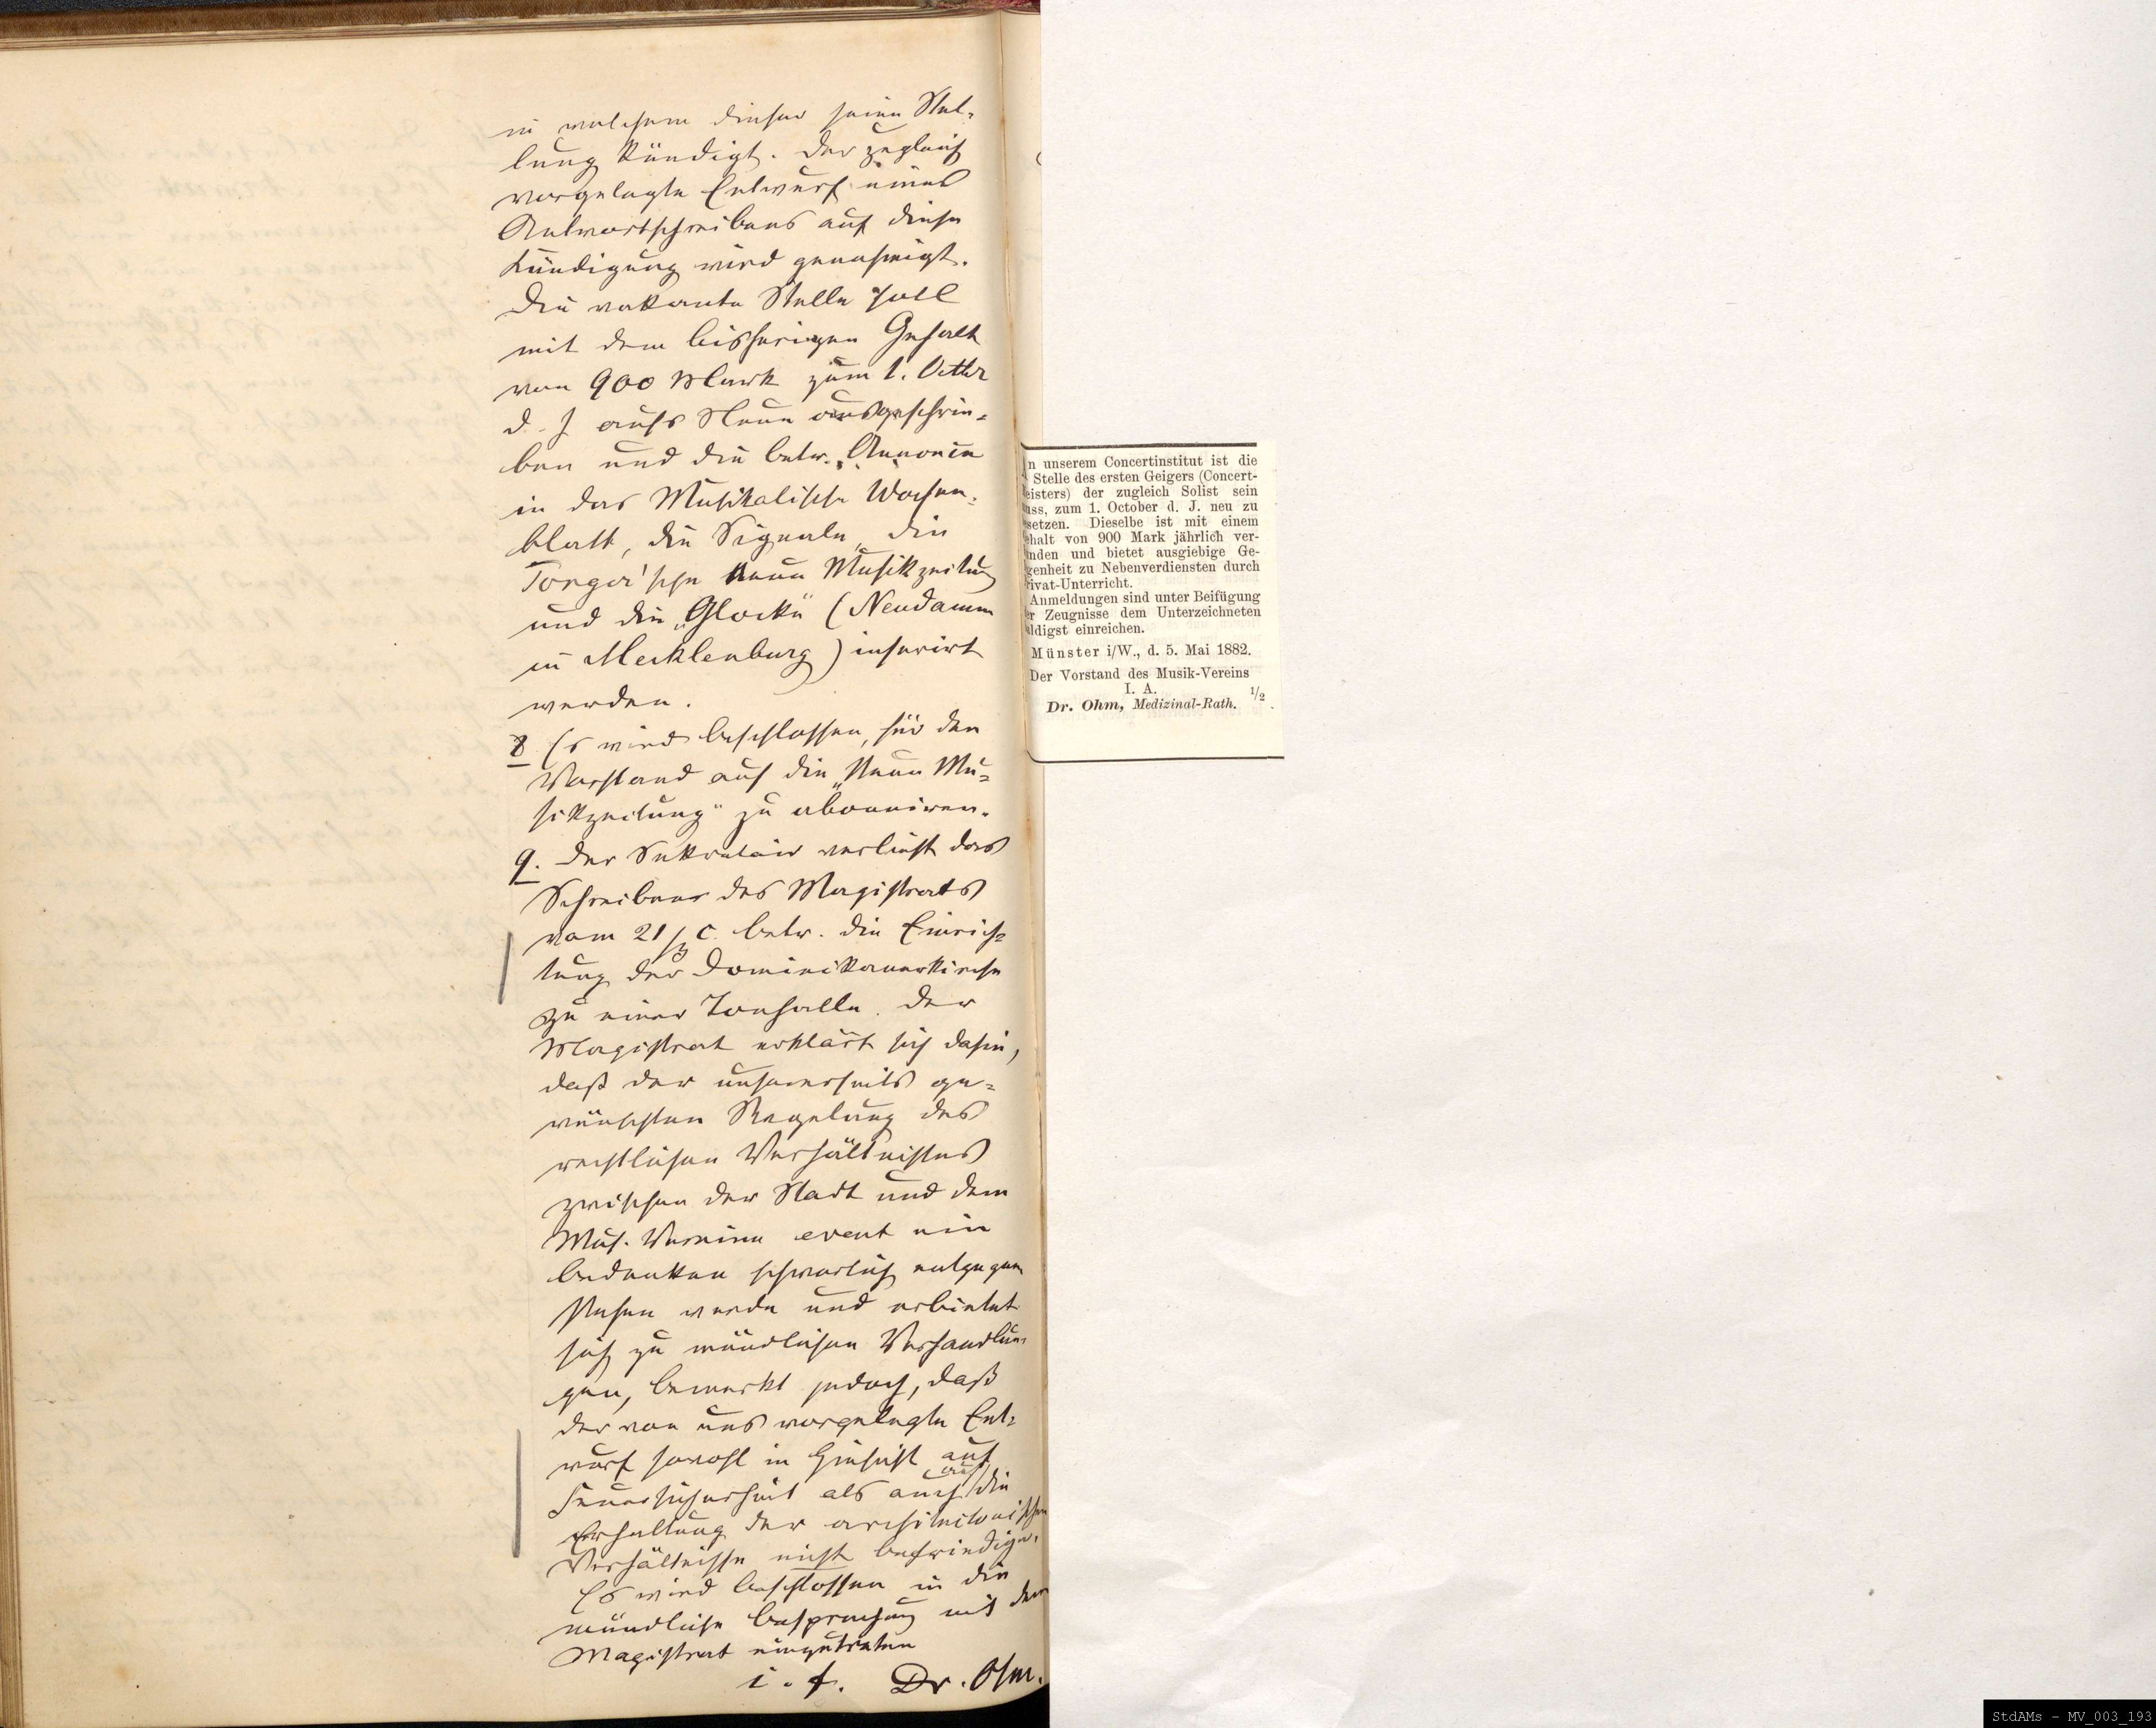 in welchem dieser seine Stel-
lung kündigt. Der zugleich
vorgelegte Entwurf eines
Antwortschreibens auf diese
Kündigung wird genehmigt.
Die vakante Stelle soll
mit dem bisherigen Gehalt
von 900 Mark zum 1. Octbr
d. J aufs Neue ausgeschrie-
ben und die betr. Annonce
in das Musikalische Wochen-
blatt, die Signale, die
Tonger'sche Neue Musikzeitung
und die „Glocke" (Neudamm
in Mecklenburg) inserirt
werden.
8 Es wird beschlossen, für den
Vorstand auf die „Neue Mu-
sikzeitung" zu abonniren.
9. Der Sekretair verliest das
Schreiben des Magistrats
vom 21/3 c. betr. die Einrich-
tung der Dominikanerkirche
zu einer Tonhalle. Der
Magistrat erklärt sich dahin,
daß der unsererseits ge-
wünschten Regelung des
rechtlichen Verhältnisses
zwischen der Stadt und dem
Mus. Vereine event ein
Bedenken schwerlich entgegen
stehen werde und erbietet
sich zu mündlichen Verhandlun-
gen, bemerkt jedoch, daß
der von uns vorgelegte Ent-
wurf sowohl in Hinsicht auf
Feuersicherheit als auch auf die
Erhaltung der architectonischen
Verhältnisse nicht befriedige.
Es wird beschlossen in die
mündliche Besprechung mit dem
Magistrat einzutreten
i. f. Dr. Ohm.
n unserem Concertinstitut ist die
Stelle des ersten Geigers (Concert-
eisters) der zugleich Solist sein
uss, zum 1. October d. J. neu zu
setzen. Dieselbe ist mit einem
halt von 900 Mark jährlich ver-
nden und bietet ausgiebige Ge-
genheit zu Nebenverdiensten durch
rivat-Unterricht.
Anmeldungen sind unter Beifügung
er Zeugnisse dem Unterzeichneten
ldigst einreichen.
Münster i/W., d. 5. Mai 1882.
Der Vorstand des Musik-Vereins
I. A. 1/2
Dr. Ohm, Medizinal-Rath.
StdAMs - MV_003_193